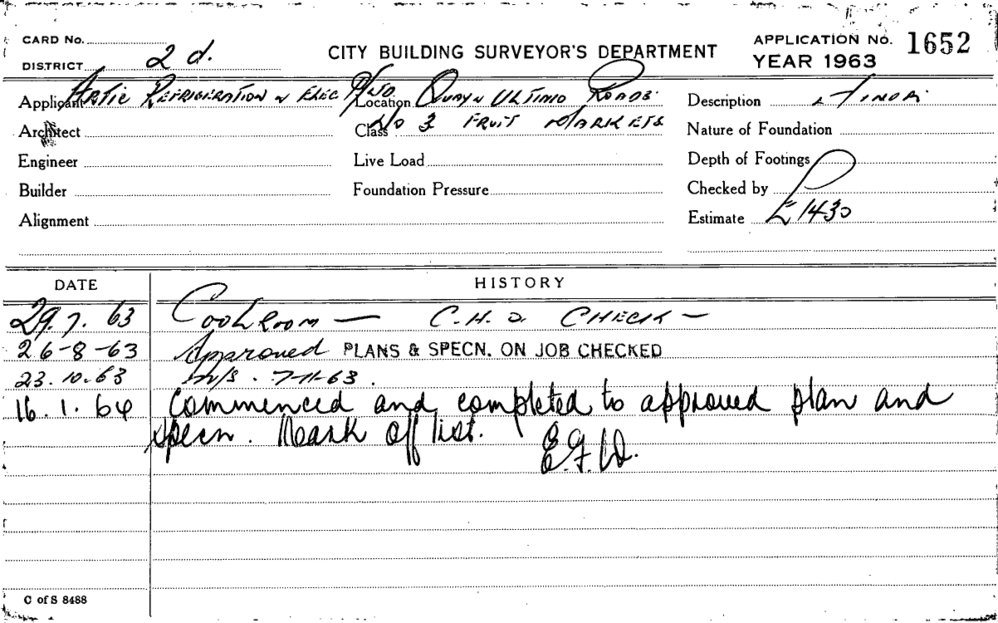 CARD No.
DISTRICT 2 d.
CITY BUILDING SURVEYOR'S DEPARTMENT
APPLICATION No. 1652
YEAR 1963
Applicant Artic Refrigeration & Elec P/L
Location Quay & Ultimo Roads
Description
Architect
Class No 3 Fruit Markets
Nature of Foundation
Engineer
Live Load
Depth of Footings
Builder
Foundation Pressure
Checked by
Alignment
Estimate £1430
DATE HISTORY
29.7.63 Coolroom — C.H.D. CHECK —
26-8-63 Approved PLANS & SPECN. ON JOB CHECKED
23.10.63 7-11-63.
16.1.64 Commenced and completed to approved plan and
specn. Mark off list.
C of S 8488